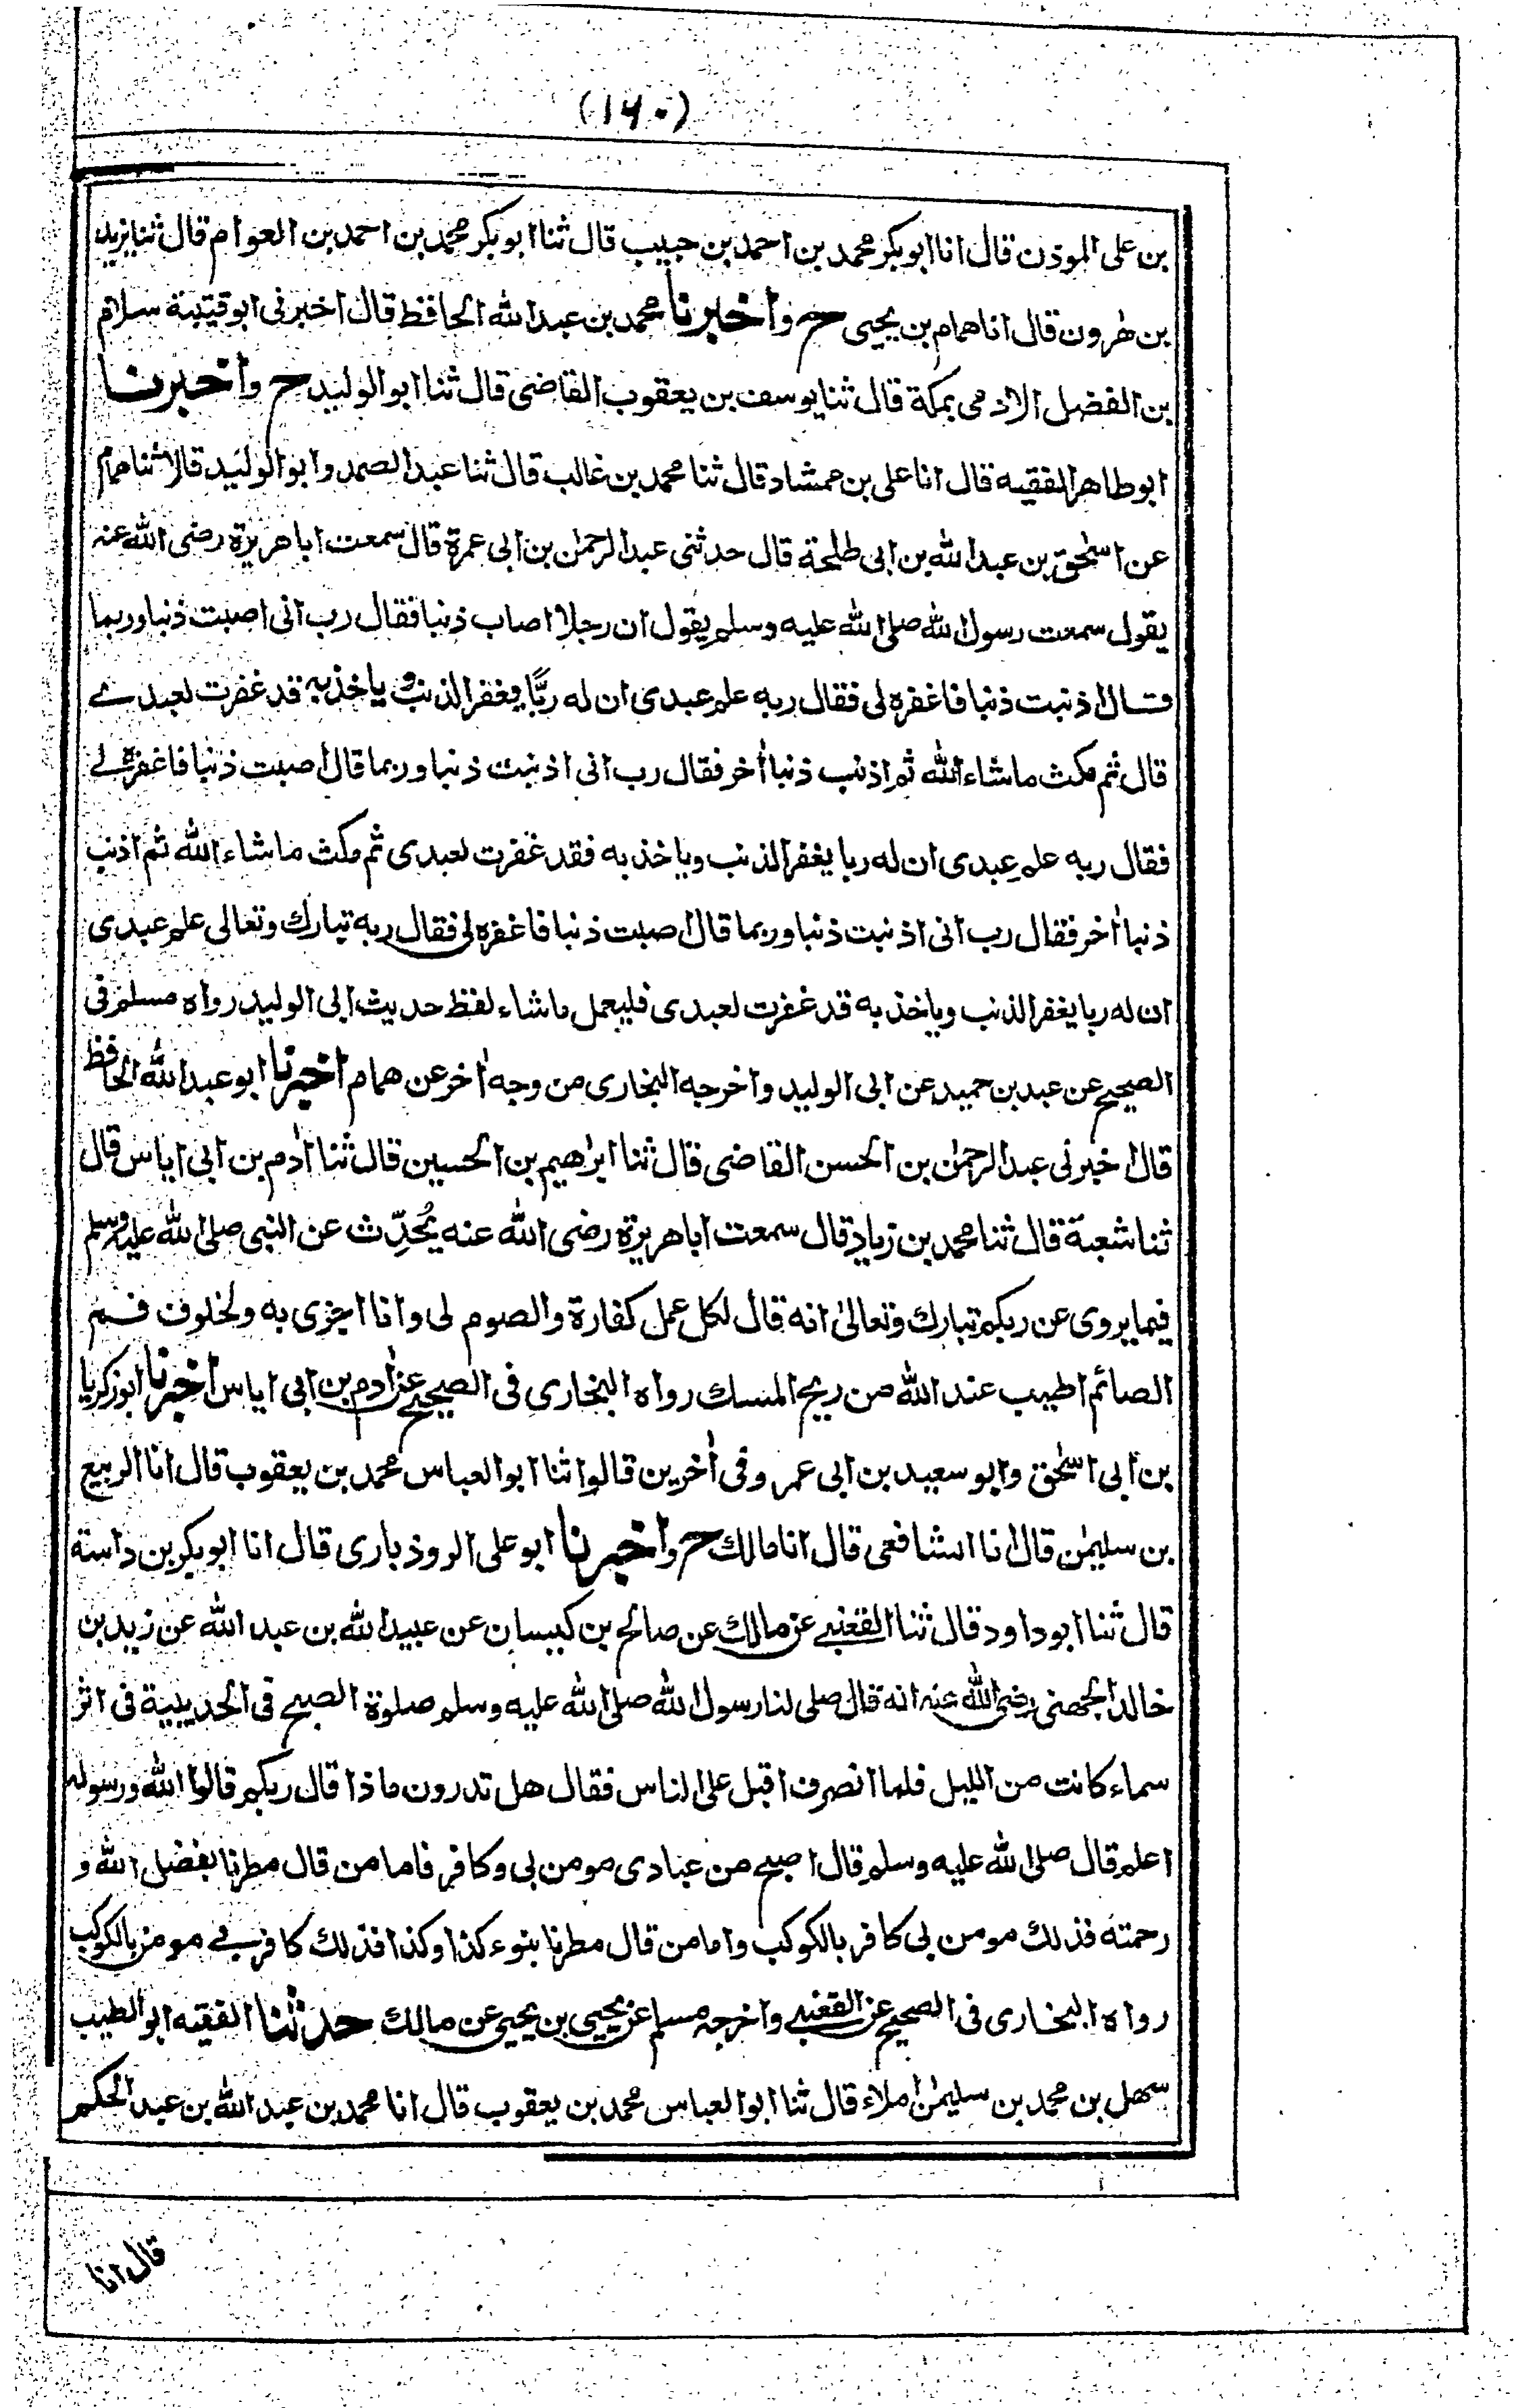 (۱۶۰)
بن على الموذن قال انا ابو بكر محمد بن احمد بن حبيب قال ثنا ابو بكر محمد بن احمد بن العوام قال ثنا يزيد
بن هٰرون قال انا همام بن يحيى ح واخبرنا محمد بن عبد الله الحافظ قال اخبرنى ابو قتيبة سلام
بن الفضل الادمى بمكة قال ثنا يوسف بن يعقوب القاضى قال ثنا ابو الوليد ح واخبرنا
ابو طاهر الفقيه قال انا على بن حمشاد قال ثنا محمد بن غالب قال ثنا عبد الصمد وابو الوليد قالا ثنا همام
عن اسحٰق بن عبد الله بن ابى طلحة قال حدثنى عبد الرحمٰن بن ابى عمرة قال سمعت ابا هريرة رضى الله عنه
يقول سمعت رسول الله صلى الله عليه وسلم يقول ان رجلا اصاب ذنبا فقال رب انى اصبت ذنبا وربما
قال اذنبت ذنبا فاغفره لى فقال ربه علم عبدى ان له ربًّا يغفر الذنب و ياخذ به قد غفرت لعبدى
قال ثم مكث ما شاء الله ثم اذنب ذنبا اٰخر فقال رب انى اذنبت ذنبا وربما قال اصبت ذنبا فاغفره لى
فقال ربه علم عبدى ان له ربا يغفر الذنب وياخذ به فقد غفرت لعبدى ثم مكث ما شاء الله ثم اذنب
ذنبا اٰخر فقال رب انى اذنبت ذنبا وربما قال اصبت ذنبا فاغفره لى فقال ربه تبارك وتعالى علم عبدى
ان له ربا يغفر الذنب وياخذ به قد غفرت لعبدى فليعمل ما شاء لفظ حديث ابى الوليد رواه مسلم فى
الصحيح عن عبد بن حميد عن ابى الوليد واخرجه البخارى من وجه اٰخر عن همام اخبرنا ابو عبد الله الحافظ
قال اخبرنى عبد الرحمٰن بن الحسن القاضى قال ثنا ابرٰهيم بن الحسين قال ثنا اٰدم بن ابى اياس قال
ثنا شعبة قال ثنا محمد بن زياد قال سمعت ابا هريرة رضى الله عنه يُحدِّث عن النبى صلى الله عليه وسلم
فيما يروى عن ربكم تبارك وتعالىٰ انه قال لكل عمل كفارة والصوم لى وانا اجزى به ولخلوف فم
الصائم اطيب عند الله من ريح المسك رواه البخارى فى الصحيح عن اٰدم بن ابى اياس اخبرنا ابو زكريا
بن ابى اسحٰق وابو سعيد بن ابى عمرو فى اٰخرين قالوا ثنا ابو العباس محمد بن يعقوب قال انا الربيع
بن سليمٰن قال انا الشافعى قال انا مالك ح واخبرنا ابو على الروذبارى قال انا ابو بكر بن داسة
قال ثنا ابو داود قال ثنا القعنبى عن مالك عن صالح بن كيسان عن عبيد الله بن عبد الله عن زيد بن
خالد الجهنى رضى الله عنه انه قال صلى لنا رسول الله صلى الله عليه وسلم صلوة الصبح فى الحديبية فى اثر
سماء كانت من الليل فلما انصرف اقبل على الناس فقال هل تدرون ما ذا قال ربكم قالوا الله ورسوله
اعلم قال صلى الله عليه وسلم قال اصبح من عبادى مومن بى وكافر فاما من قال مطرنا بفضل الله و
رحمته فذلك مومن بى كافر بالكوكب واما من قال مطرنا بنوء كذا وكذا فذلك كافر بى مومن بالكوكب
رواه البخارى فى الصحيح عن القعنبى واخرجه مسلم عن يحيى بن يحيى عن مالك حدثنا الفقيه ابو الطيب
سهل بن محمد بن سليمٰن املاء قال ثنا ابو العباس محمد بن يعقوب قال انا محمد بن عبد الله بن عبد الحكم
قال انا